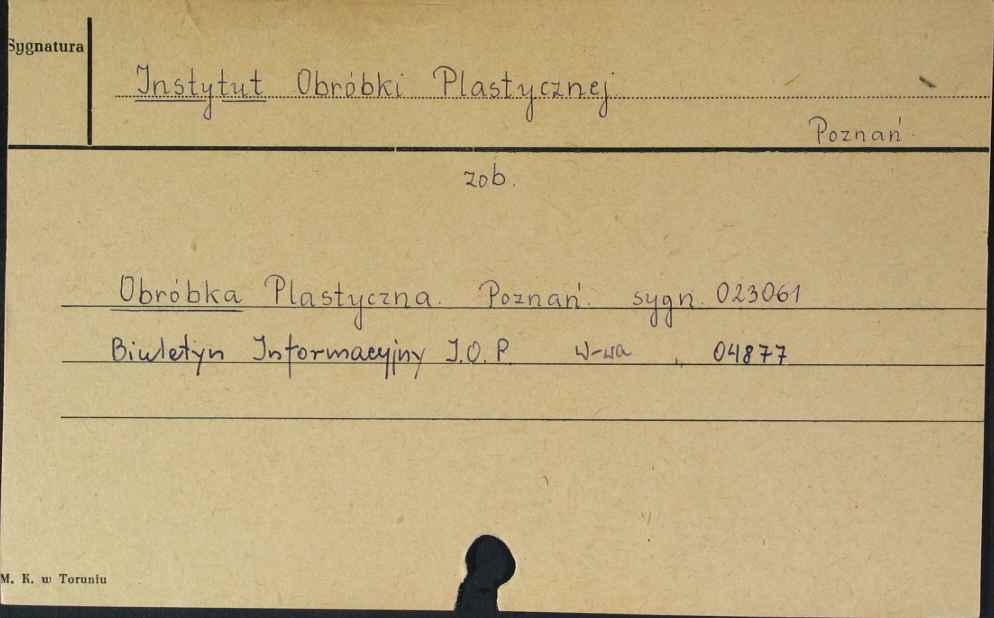 Sygnatura
Instytut Obróbki Plastycznej
Poznań.
zob.
Obróbka Plastyczna. Poznań. sygn. 023061
Biuletyn Informacyjny I.O.P. W-wa „ 04877
M. K. w Toruniu